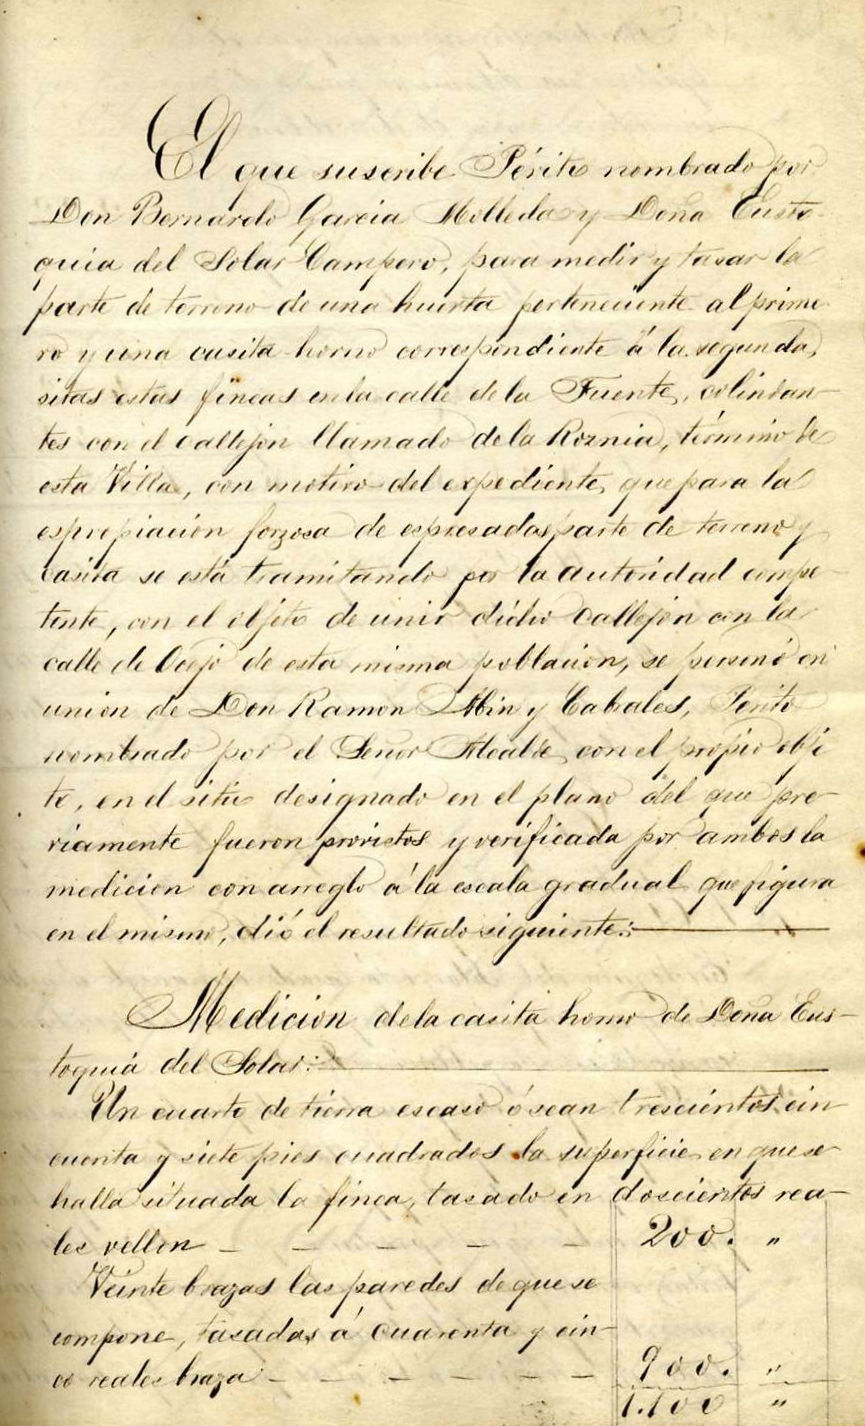 El que suscribe Périto nombrado por
Don Bernardo Garcia Molleda y Doña Eusto-
quia del Solar Campero, para medir y tasar la
parte de terreno de una huerta perteneciente al prime
ro y una casita horno correspondiente á la segunda,
sitas estas fincas en la calle de la Fuente, colindan-
tes con el callejon llamado de la Roznia, término de
esta Villa, con motivo del expediente, que para la
espropiacion forzosa de espresadas parte de terreno y
casita se está tramitando por la autoridad compe-
tente, con el objeto de unir dicho callejon con la
calle de Ocejo de esta misma poblacion, se personó en
union de Don Ramon y Cabales, Perito
nombrado por el Señor Alcalde, con el propio obje
to, en el sitio designado en el plano del que pre-
viamente fueron provistos y verificada por ambos la
medicion con arreglo á la escala gradual que figura
en el mismo, dió el resultado siguiente:
Medicion de la casita horno de Doña Eus-
toquia del Solar:
Un cuarto de tierra escaso ó sean trescientos cin
cuenta y siete pies cuadrados la superficie en que se
halla situada la finca, tasado en doscientos rea-
les vellon - - - - - 200. "
Veinte brazas las paredes de que se
compone, tasadas á cuarenta y cin-
co reales braza - - - - - 900. "
1.100 "